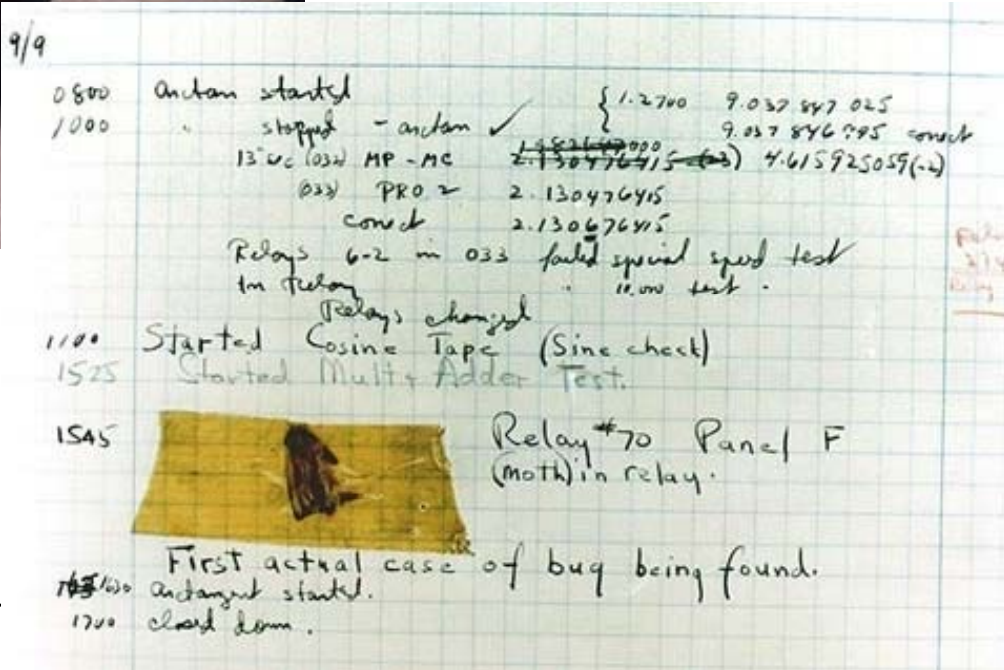 9/9
0800 antan started { 1.2700 9.037 847 025
1000 " stopped - antan ✓ 9.037 846 795 conect
13" uc (032) MP - MC 2.130476415 (-3) 4.615925059(-2)
(033) PRO 2 2.130476415
conect 2.130676415
Relays 6-2 in 033 failed special speed test
in Relay " 10.000 test .
Relays changed
1100 Started Cosine Tape (Sine check)
1525 Started Mult + Adder Test.
1545 Relay #70 Panel F
(moth) in relay.
First actual case of bug being found.
1630 antangent started.
1700 closed down .